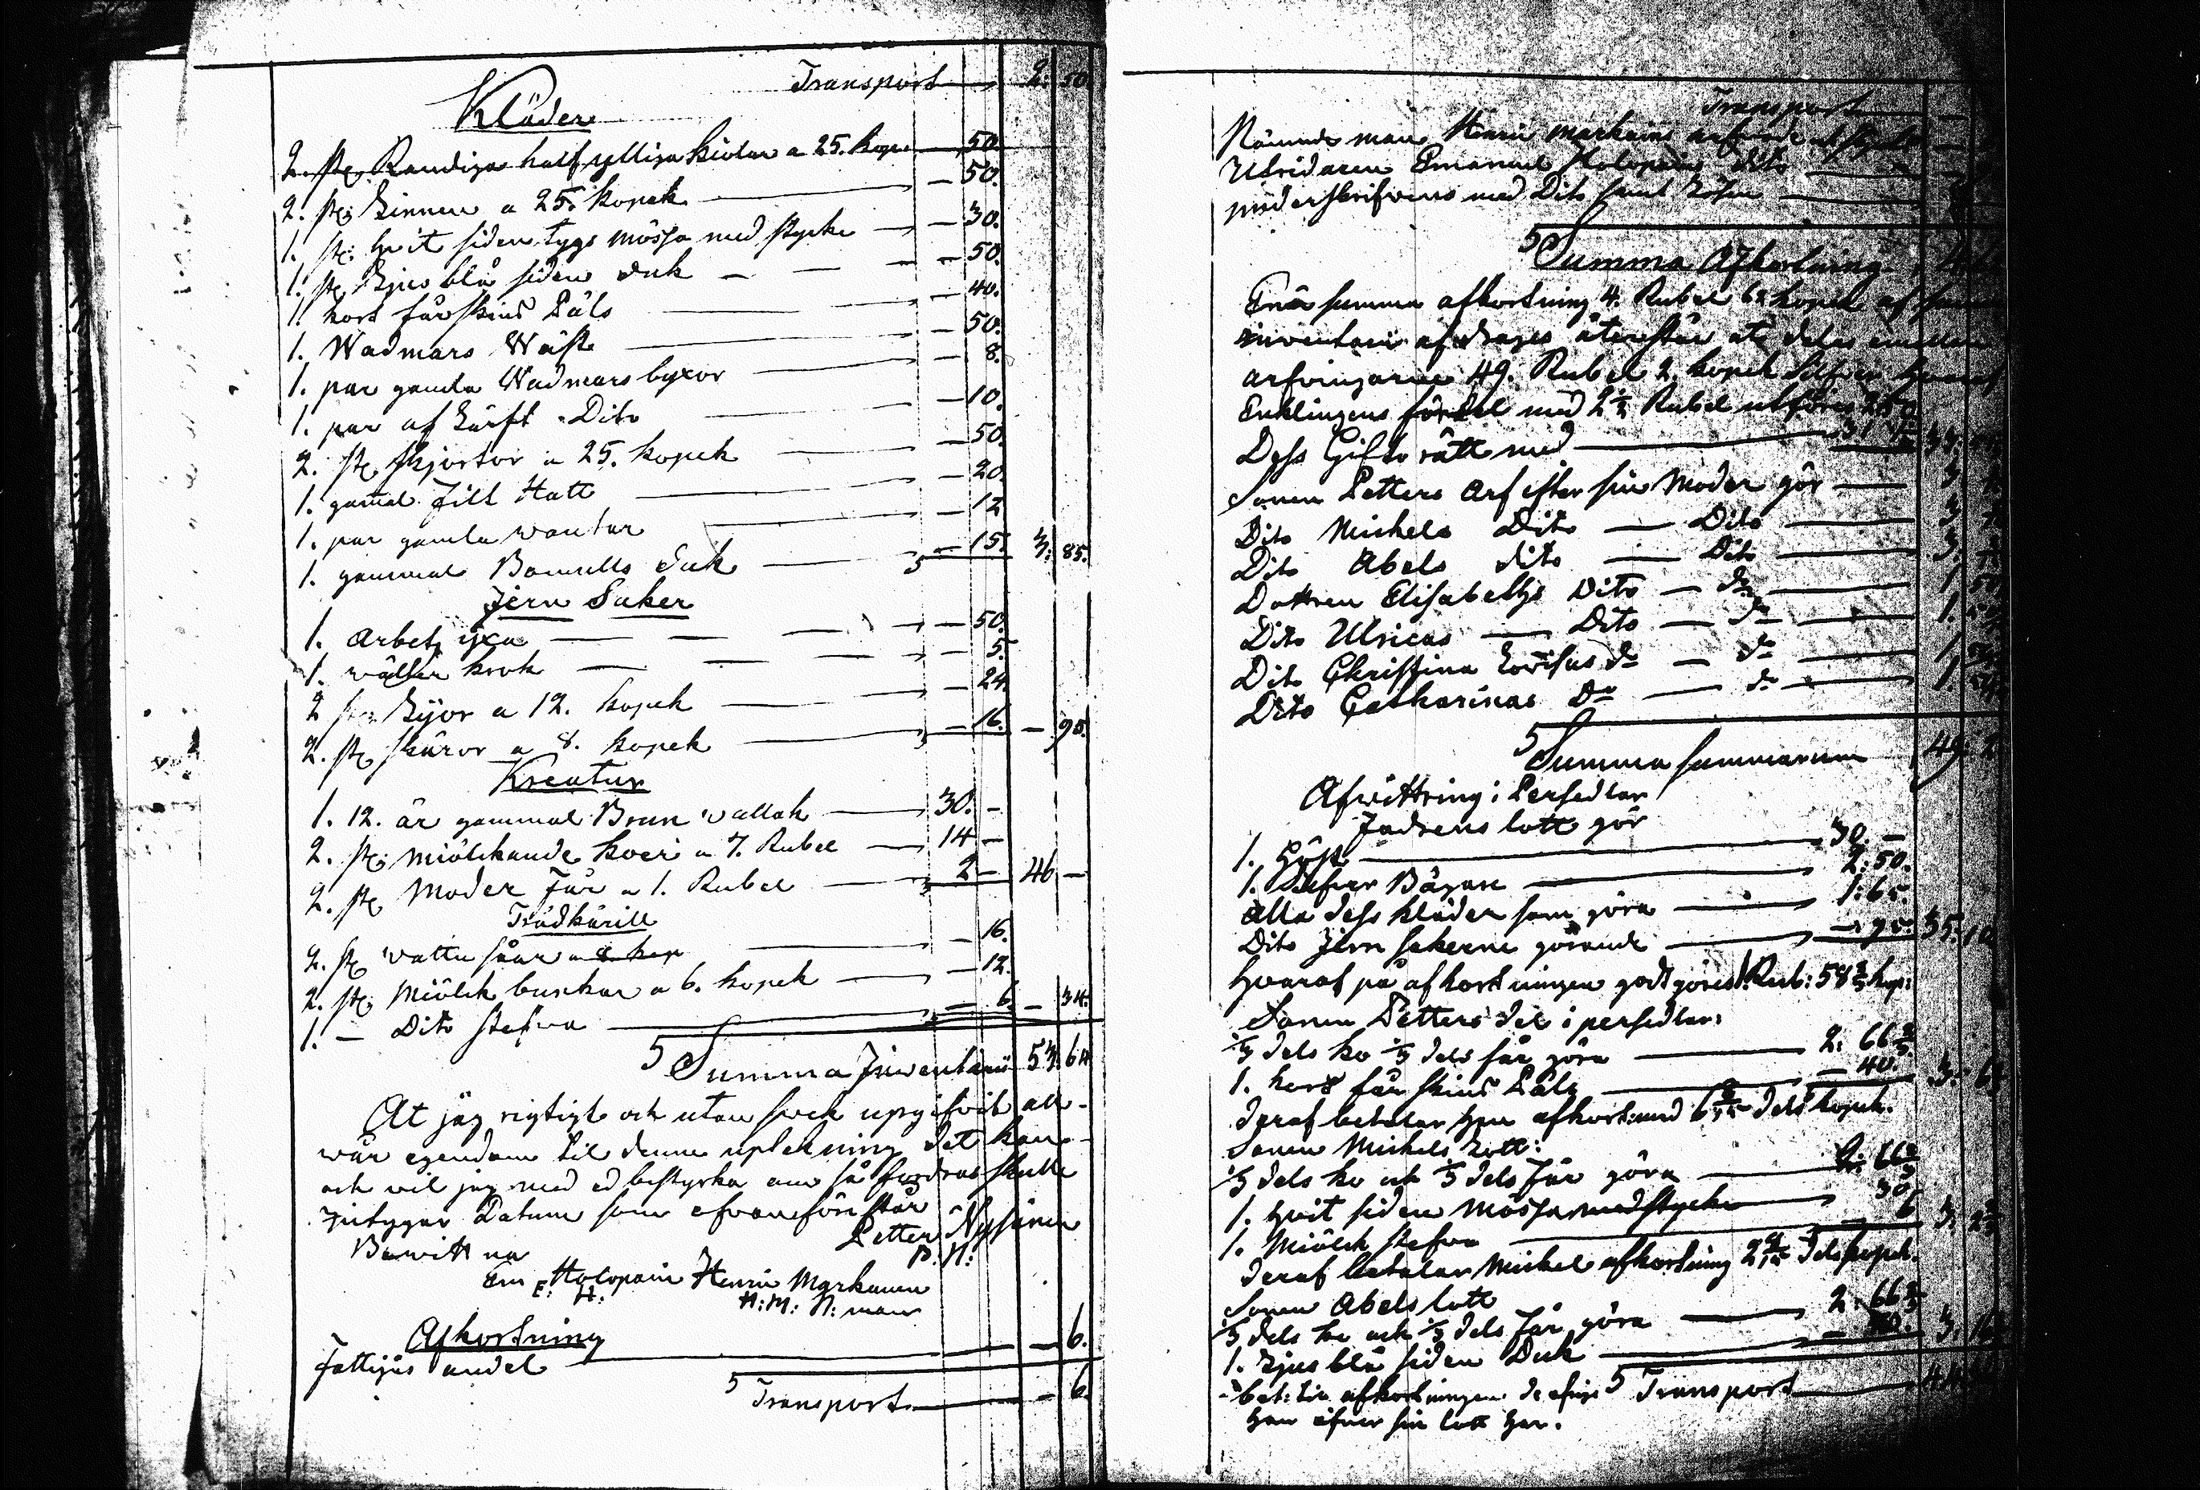 Transport — 2: 50
Kläder
2. st. Randiga half ylliga kiolar a 25. kop. — 50.
2. st. Linnen a 25. kopek — 50.
1. st. hvit siden tygs mössa med stycke — 30.
1. st. Ljus blå siden duk — 50.
1. kort fårskins Päls — 40.
1. Wadmars Wäst — 50.
1. par gamla Wadmars byxor — 8.
1. par af Lärft Dito — 10.
2. st. skjortor a 25. kopek — 50.
1. gamal Filt Hatt — 20.
1. par gamla wantar — 12
1. gammal Bomulls duk — 15. 3: 85.
Jern Saker
1. Arbets yxa — 50.
1. krok — 5.
2 st. Lijor a 12. kopek — 24
2. st. skäror a 8. kopek — 16. — 95.
Kreatur
1. 12. år gammal Brun vallak — 30. —
2. st. miölckande koer a 7. Rubel — 14 —
2. st. Moder Får a 1. Rubel — 2 — 46 —
Trädkärill
2. st. vattu såar a 8 kop — 16.
2. st. Miölck bunkar a 6. kopek — 12.
1. — Dito stefva — 6. — 34.
Summa Inventarii 53. 64
At jag rigtigt och utan svek upgifvit all
wår egendom til denna uptekning det kan
och vil jag med ed bestyrka om så fordras skulle
intygar Datum som ofvanföre står
Petter Nyssönen
Bewittna P: N:
Em Holopain Henric Markanen
E: H: H: M: N: man
Afkortning
Fattigas andel — 6.
Transport — 6.
Transport
Nämnde man Henric Markains arfvode
Utridaren Emanuel Holopains Dito
underskrifvens med Dito samt Lösen
Summa Afkortning
Enär summa afkortning 4. Rubel 62 kopek af
inventarii afdrages återstår at delas emellan
arfvingarne 49. Rubel 2. kopek Silfver hvaraf
Enklingens fördel med 2 1/2 Rubel utföres
Dess Gifto rätt med
Sonen Petters Arf efter sin Moder gör — 3
Dito Michels Dito — Dito — 3.
Dito Abels dito — Dito — 3.
Dottren Elisabeths Dito — do — 1
Dito Ulricas — Dito — do — 1.
Dito Christina Lovisas do — do — 1
Dito Catharinas Do — do — 1.
Summa summarum 49. 2
Afwittring i Persedlar
Fadrens lott gör
1. Häst — 30. —
1. Silfver Bägare — 2: 50.
Alla dess kläder som göra — 1: 65.
Dito Jern sakerne görande — 95. 35. 10
hvaraf på afkortningen godtgöres 1. Rub: 58 kop:
Sonen Petters del i persedlar:
1/3 dels ko 1/3 dels får göra — 2. 66 2/3
1. kort fårskins Päls — 40. 3. 6
deraf betalar han afkort: med dels kopek.
Sonen Michels Lott:
1/3 dels ko och 1/3 dels Får göra — 2: 66 2/3
1. hvit siden Mössa med stycke — 30.
1. Miölck stefva — 6 3. 2
deraf betalar Michel afkortning dels kopek.
Sonen Abels lott
1/3 dels ko och 1/3 dels Får göra — 2. 66 2/3
1. Ljus blå siden Duk — 50. 3. 16
bet: till afkortningen Transport — 44
han öfver sin lott har.